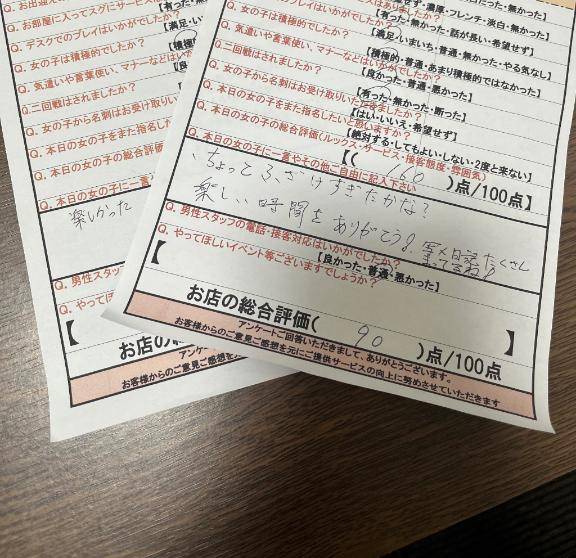 Q. お出迎え
Q. お部屋に入ってスグにサービス
Q. デスクでのプレイはいかがでしたか?
Q. 女の子は積極的でしたか?
Q. 気遣いや言葉使い、マナーなどはいか
Q. 二回戦はされましたか?
Q. 女の子から名刺はお受け取りい
Q. 本日の女の子をまた指名した
Q. 本日の女の子の総合評価
Q. 本日の女の子に一言
楽しかった
Q. 男性スタッフ
Q. やってほ
【
お店の
アンケー
お客様からのご意見ご感想を
濃厚・フレンチ・淡白・無かった】
プレイはいかがでしたか?
Q. 女の子は積極的でしたか?
【満足・いまいち・普通・無かった・やる気なし】
Q. 気遣いや言葉使い、マナーなどはいかがでしたか?
【積極的・普通・あまり積極的ではなかった】
Q. 二回戦はされましたか?
【良かった・普通・悪かった】
Q. 女の子から名刺はお受け取りいただきましたか?
【有った・無かった・断った】
Q. 本日の女の子をまた指名したいと思いますか?
【はい・いいえ・希望せず】
Q. 本日の女の子の総合評価(ルックス・サービス・接客態度・雰囲気)
【絶対する・してもよい・しない・2度と来ない】
【( 60 )点/100点】
Q. 本日の女の子に一言やその他ご自由に記入下さい
ちょっとふざけすぎたかな?
楽しい時間をありがとう!
写メ日記たくさん
まってるね
Q. 男性スタッフの電話・接客対応はいかがでしたか?
【良かった・普通・悪かった】
Q. やってほしいイベント等ございますでしょうか?
【 】
お店の総合評価( 90 )点/100点
アンケートご回答いただきまして、ありがとうございます。
お客様からのご意見ご感想を元にご提供サービスの向上に努めさせていただきます